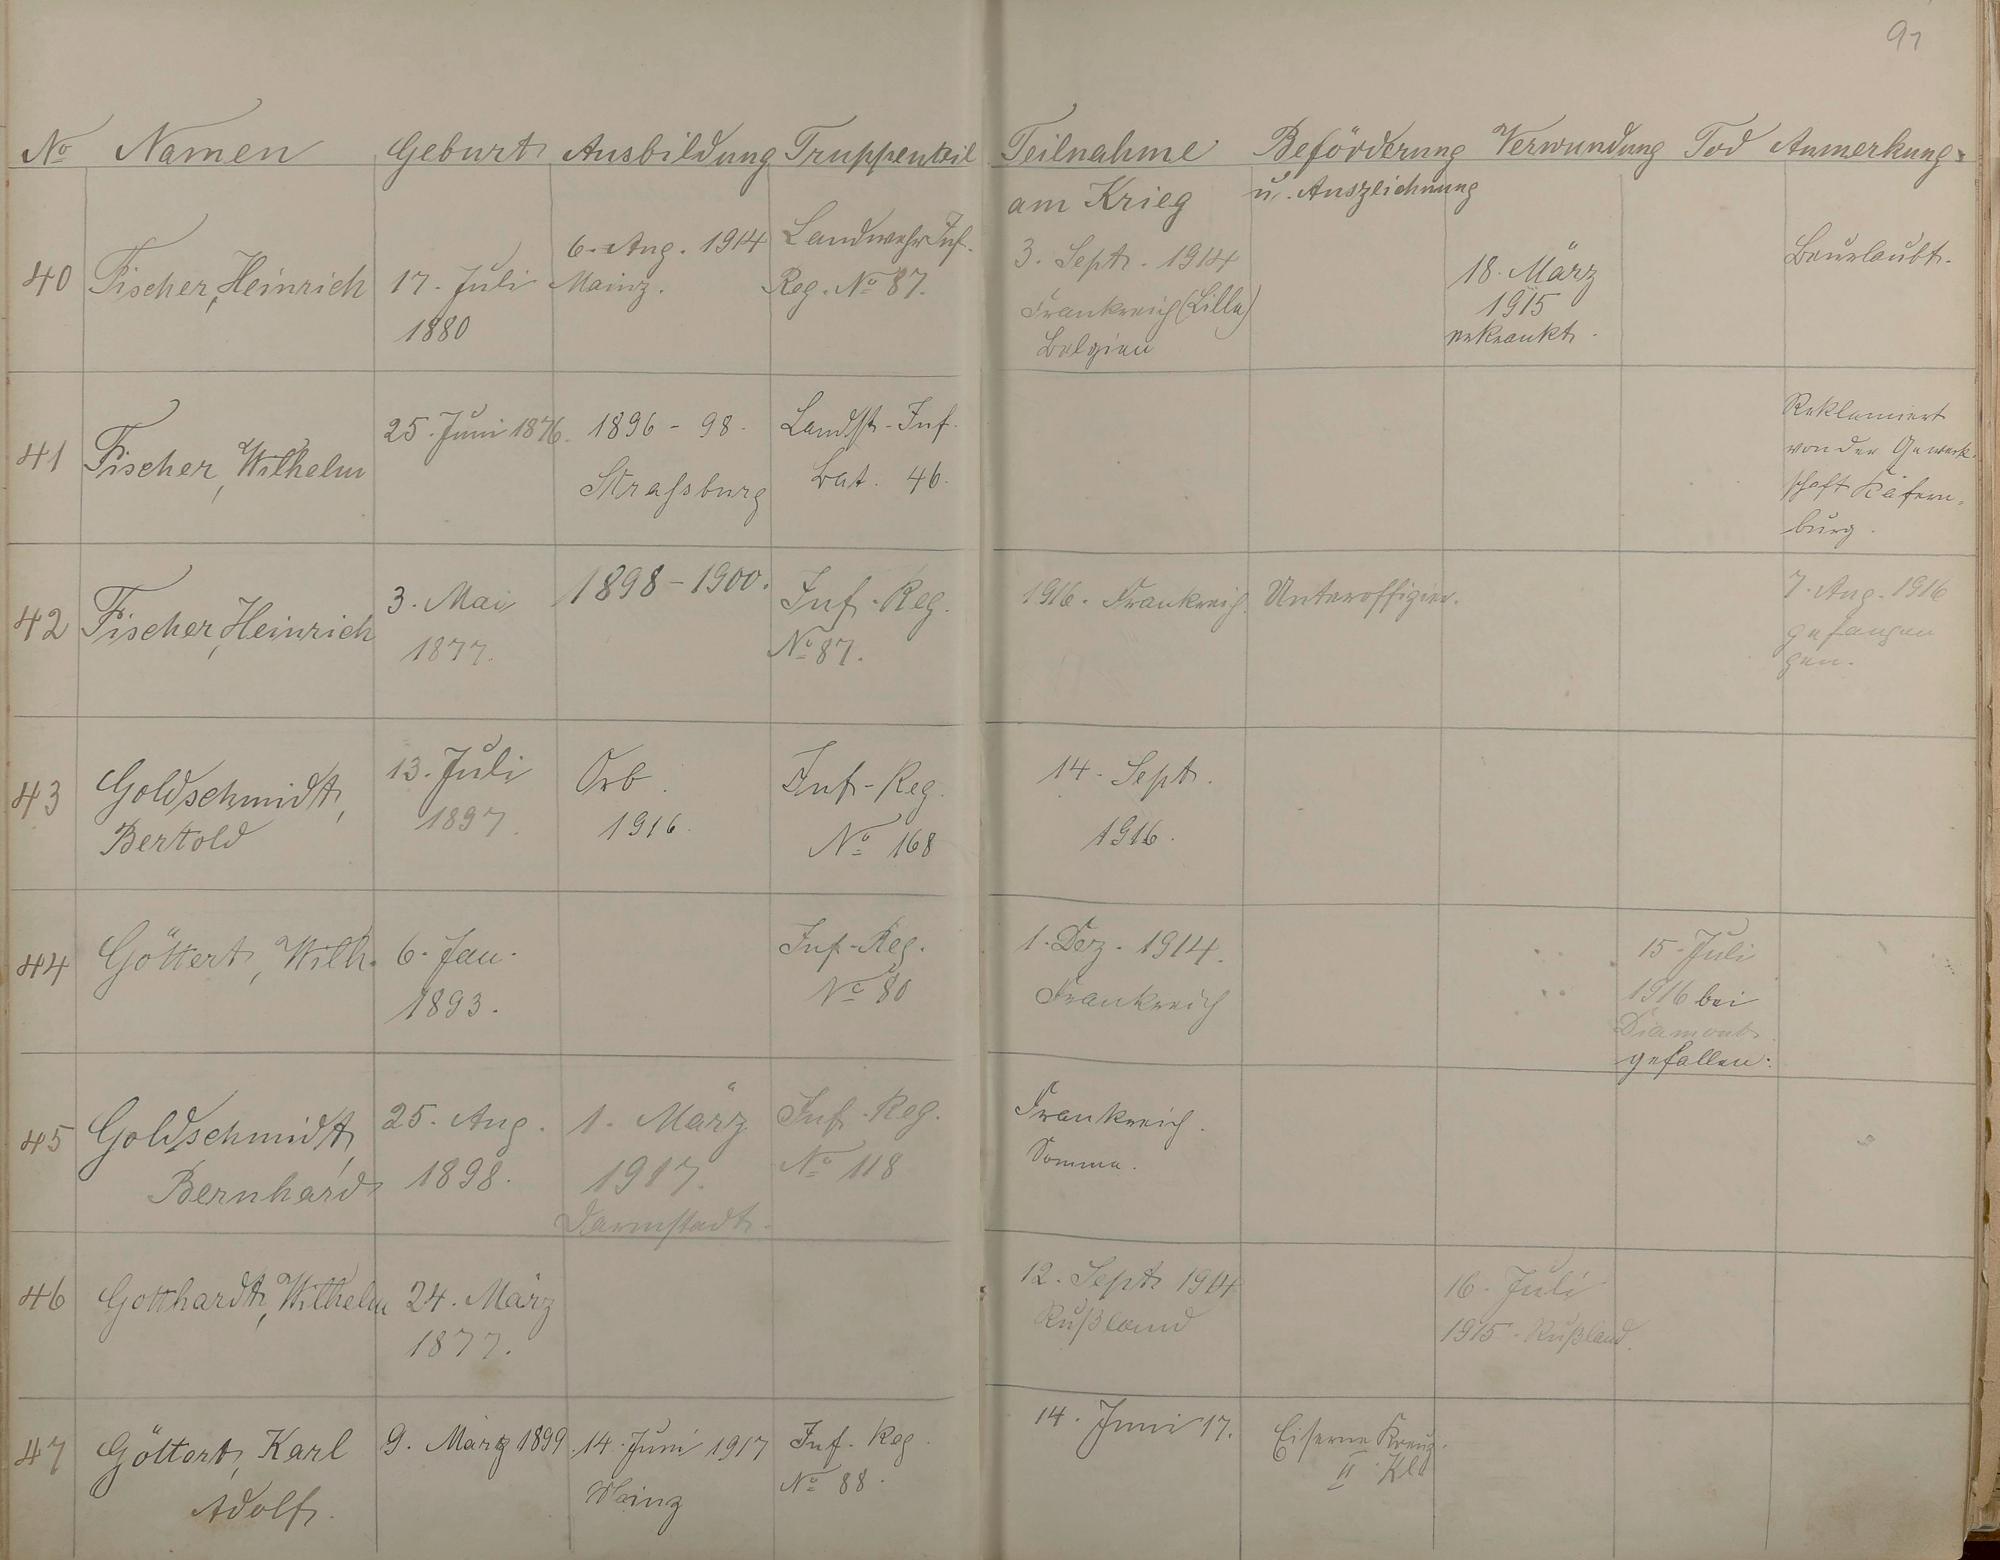 91
No Namen Geburt Ausbildung Truppenteil Teilnahme Beförderung Verwundung Tod Anmerkung
am Krieg u. Auszeichnung
40 Fischer, Heinrich
17. Juli
1880
6. Aug. 1914
Mainz.
Landwehr Inf.
Reg. No 87.
3. Sept. 1914
Frankreich (Lille)
Belgien
18. März
1915
erkrankt.
Beurlaubt.
41 Fischer, Wilhelm
25. Juni 1876.
1896 - 98.
Straßburg
Landst.-Inf.
Bat. 46.
Reklamiert
von der Gewerk-
schaft Käfern-
burg.
42 Fischer, Heinrich
3. Mai
1877.
1898 - 1900.
Inf.-Reg.
No 87.
1916. Frankreich.
Unteroffizier.
7. Aug. 1916
gefangen
gen.
43 Goldschmidt,
Bertold
13. Juli
1897.
Orb.
1916.
Inf.-Reg.
No 168
14. Sept.
1916.
44 Göttert, Wilh.
6. Jan.
1893.
Inf.-Reg.
No 80
1. Dez. 1914.
Frankreich
15. Juli
1916 bei
gefallen.
45 Goldschmidt,
Bernhard
25. Aug.
1898.
1. März
1917.
Darmstadt.
Inf.-Reg.
No 118
Frankreich.
Somme.
46 Gotthardt, Wilhelm
24. März
1877.
12. Sept. 1914
Rußland
16. Juli
1915. Rußland.
47 Göttert, Karl
Adolf.
9. März 1899.
14. Juni 1917
Mainz
Inf. Reg.
No 88.
14. Juni 17.
Eiserne Kreuz.
II. Kl.